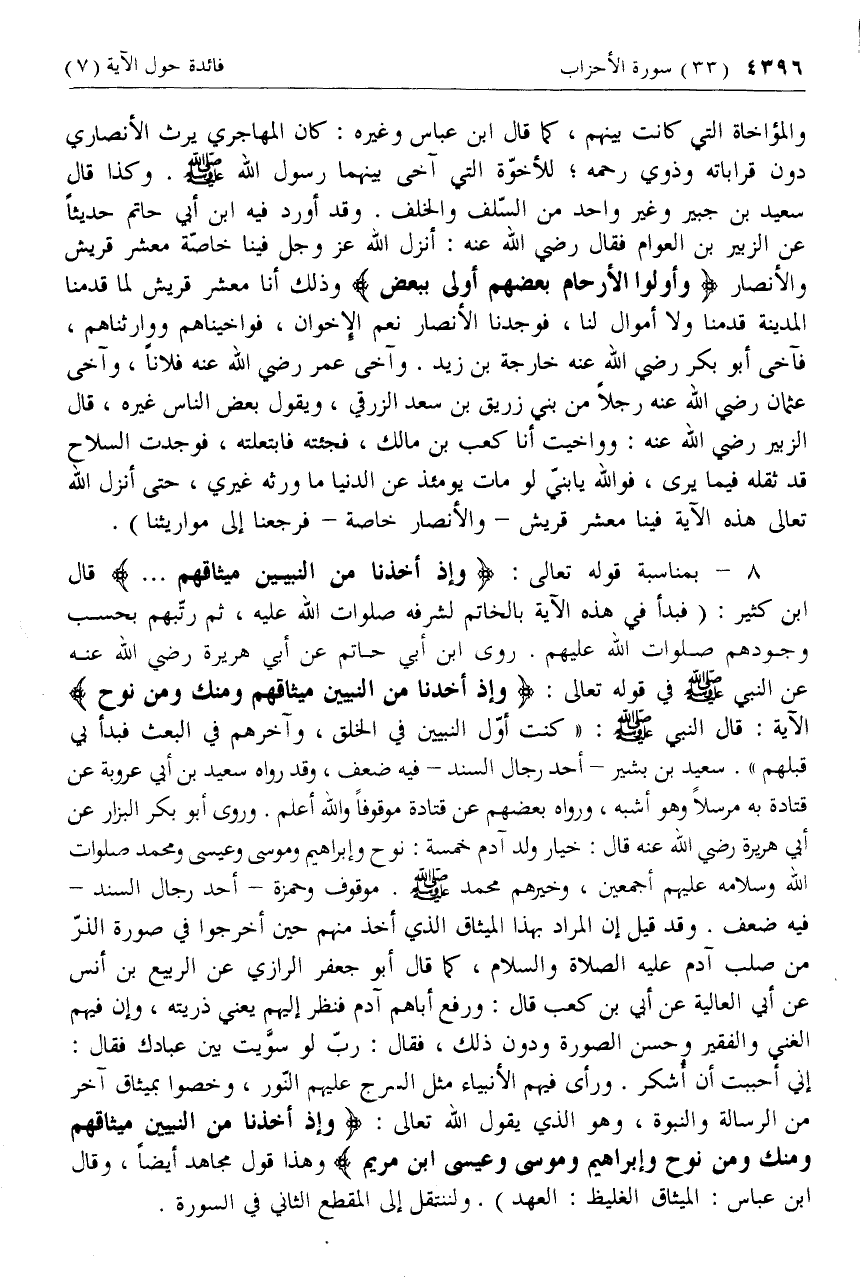 ٤٣٩٦ (٣٣) سورة الأحزاب فائدة حول الآية (٧)
والمؤاخاة التي كانت بينهم ، كما قال ابن عباس وغيره : كان المهاجري يرث الأنصاري
دون قراباته وذوي رحمه ؛ للأخوّة التي آخى بينهما رسول الله ﷺ . وكذا قال
سعيد بن جبير وغير واحد من السّلف والخلف . وقد أورد فيه ابن أبي حاتم حديثاً
عن الزبير بن العوام فقال رضي الله عنه : أنزل الله عز وجل فينا خاصّة معشر قريش
والأنصار ﴿ وأولوا الأرحام بعضهم أولى ببعض ﴾ وذلك أنا معشر قريش لما قدمنا
المدينة قدمنا ولا أموال لنا ، فوجدنا الأنصار نعم الإخوان ، فواخيناهم ووارثناهم ،
فآخى أبو بكر رضي الله عنه خارجة بن زيد . وآخى عمر رضي الله عنه فلاناً ، وآخى
عثمان رضي الله عنه رجلاً من بني زريق بن سعد الزرقي ، ويقول بعض الناس غيره ، قال
الزبير رضي الله عنه : وواخيت أنا كعب بن مالك ، فجئته فابتعلته ، فوجدت السلاح
قد ثقله فيما يرى ، فوالله يابنيّ لو مات يومئذ عن الدنيا ما ورثه غيري ، حتى أنزل الله
تعالى هذه الآية فينا معشر قريش – والأنصار خاصة – فرجعنا إلى مواريثنا ) .
٨ – بمناسبة قوله تعالى : ﴿ وإذ أخذنا من النبيين ميثاقهم ... ﴾ قال
ابن كثير : ( فبدأ في هذه الآية بالخاتم لشرفه صلوات الله عليه ، ثم رتّبهم بحسب
وجودهم صلوات الله عليهم . روى ابن أبي حاتم عن أبي هريرة رضي الله عنه
عن النبي ﷺ في قوله تعالى : ﴿ وإذ أخذنا من النبيين ميثاقهم ومنك ومن نوح ﴾
الآية : قال النبي ﷺ : « كنت أوّل النبيين في الخلق ، وآخرهم في البعث فبدأ بي
قبلهم » . سعيد بن بشير – أحد رجال السند – فيه ضعف ، وقد رواه سعيد بن أبي عروبة عن
قتادة به مرسلاً وهو أشبه ، ورواه بعضهم عن قتادة موقوفاً والله أعلم . وروى أبو بكر البزار عن
أبي هريرة رضي الله عنه قال : خيار ولد آدم خمسة : نوح وإبراهيم وموسى وعيسى ومحمد صلوات
الله وسلامه عليهم أجمعين ، وخيرهم محمد ﷺ . موقوف وحمزة – أحد رجال السند –
فيه ضعف . وقد قيل إن المراد بهذا الميثاق الذي أخذ منهم حين أخرجوا في صورة الذرّ
من صلب آدم عليه الصلاة والسلام ، كما قال أبو جعفر الرازي عن الربيع بن أنس
عن أبي العالية عن أبي بن كعب قال : ورفع أباهم آدم فنظر إليهم يعني ذريته ، وإن فيهم
الغني والفقير وحسن الصورة ودون ذلك ، فقال : ربّ لو سوَّيت بين عبادك فقال :
إني أحببت أن أُشكر . ورأى فيهم الأنبياء مثل السرج عليهم النّور ، وخصوا بميثاق آخر
من الرسالة والنبوة ، وهو الذي يقول الله تعالى : ﴿ وإذ أخذنا من النبيين ميثاقهم
ومنك ومن نوح وإبراهيم وموسى وعيسى ابن مريم ﴾ وهذا قول مجاهد أيضاً ، وقال
ابن عباس : الميثاق الغليظ : العهد ) . ولننتقل إلى المقطع الثاني في السورة .